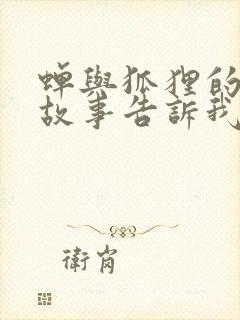 蟬與狐狸的
故事告訴我
衛肖